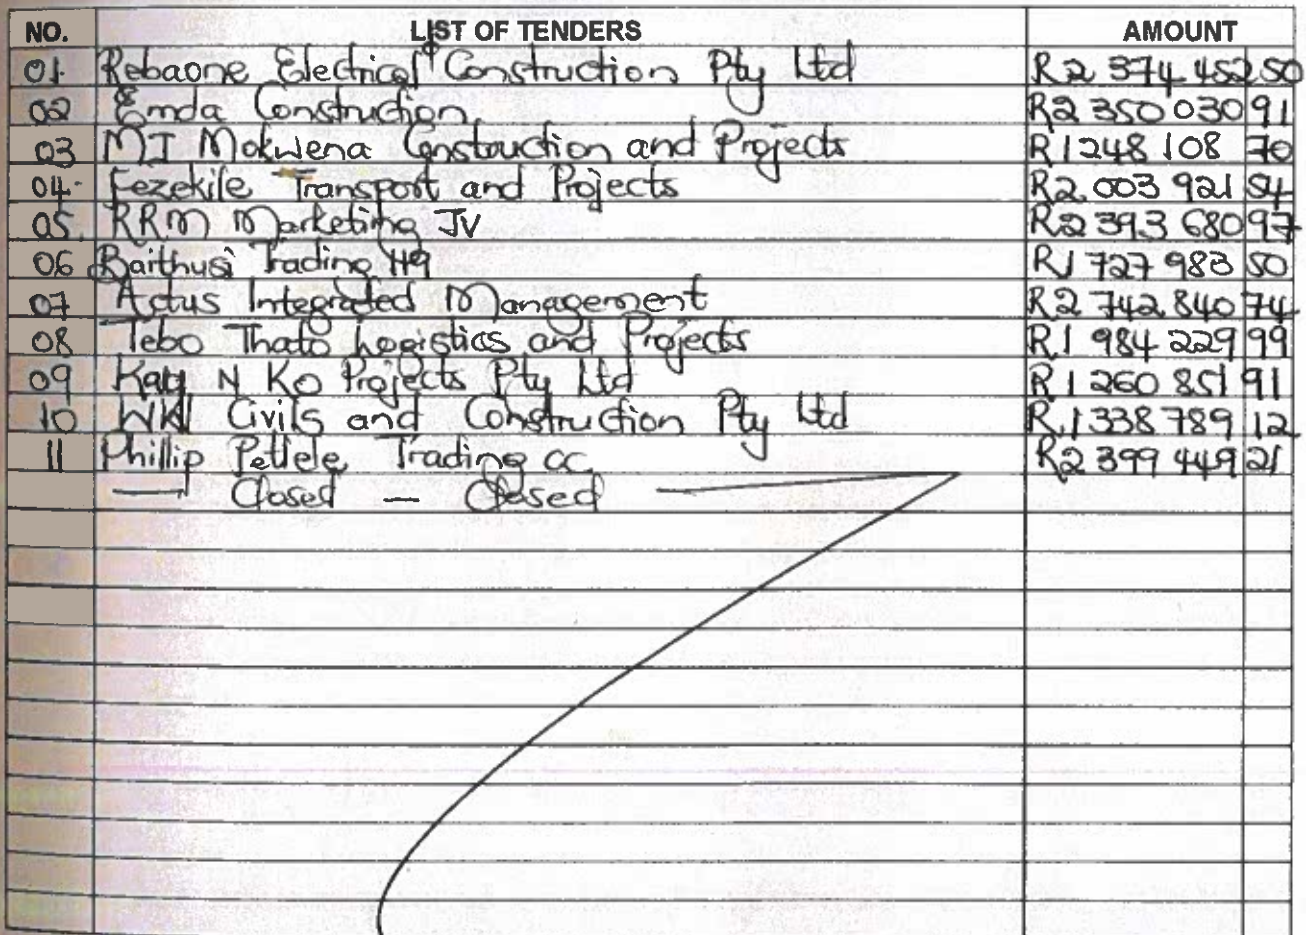 NO. LIST OF TENDERS AMOUNT
01. Rebaone Electrical & Construction Pty Ltd R2 374 452 50
02 Emda Construction R2 350 030 91
03 MJ Mokwena Construction and Projects R1 248 108 70
04. Fezekile Transport and Projects R2 003 921 54
05. RRM Marketing JV R2 393 680 97
06 Baithusi Trading 119 R1 727 983 50
07 Actus Integrated Management R2 742 840 74
08 Tebo Thato Logistics and Projects R1 984 229 99
09 Katy N Ko Projects Pty Ltd R1 260 851 91
10 Civils and Construction Pty Ltd R1 338 789 12
11 Phillip Petlele Trading cc R2 399 449 21
— Closed — Closed —